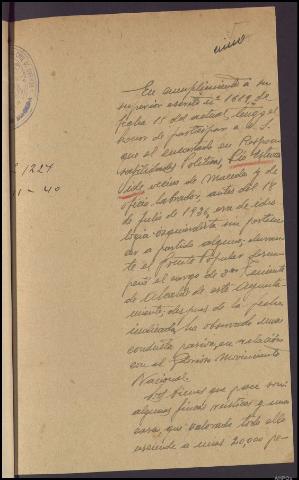 En cumplimiento a su
superior escrito nº 1619, de
fecha 15 del actual, tengo el
honor de participar a V. S.
que el encartado en Respon-
sabilidades Politicas,
vecino de Maceda y de
oficio labrador, antes del 18
de Julio de 1936, era de ideo-
logia izquierdista sin pertene-
cer a partido alguno, duran-
te el Frente Popular desem-
peñó el cargo de 3er Teniente
de Alcalde de este Ayunta-
miento; despues de la fecha
indicada, ha observado una
conducta pasiva en relación
con el Glorioso Movimiento
Nacional.
Los bienes que posee son:
algunas fincas rusticas y una
casa, que valorado todo ello
asciende a unas 20,000 pe-
1227
- 40